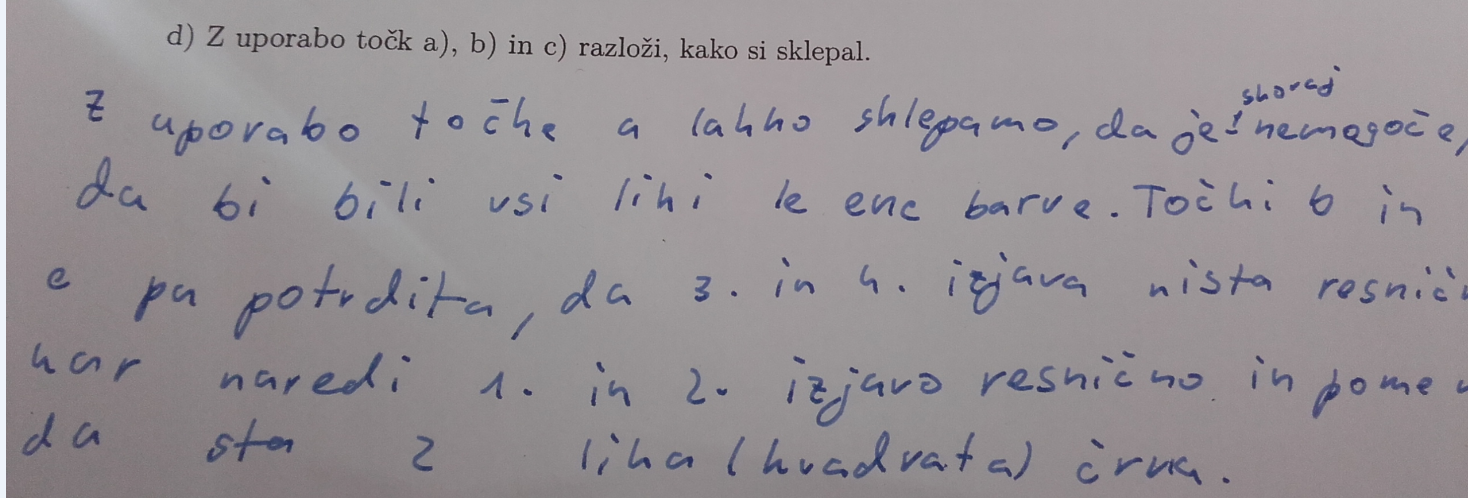 d) Z uporabo točk a), b) in c) razloži, kako si sklepal.
skoraj
Z uporabo točke a lahko sklepamo, da je nemogoče,
da bi bili vsi liki le ene barve. Točki b in
c pa potrdita, da 3. in 4. izjava nista resničn
kar naredi 1. in 2. izjavo resnično in pomen
da sta 2 lika (kvadrata) črna.